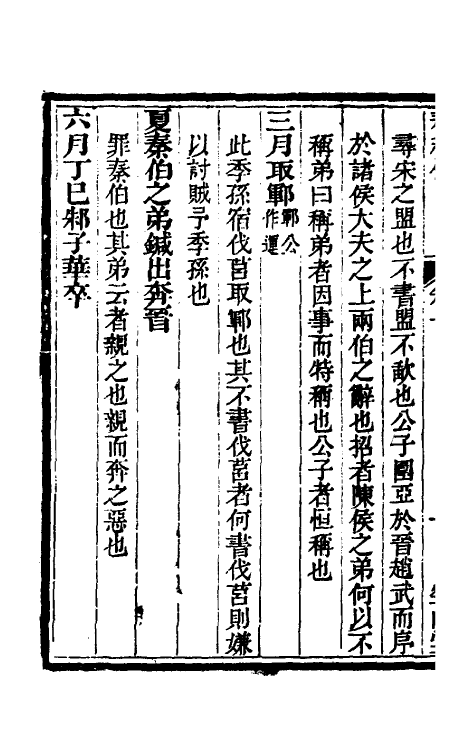 尋宋之盟也不書盟不歃也公子圍亞於晉趙武而序
於諸侯大夫之上兩伯之辭也招者陳侯之弟何以不
稱弟曰稱弟者因事而特稱也公子者恒稱也
三月取鄆鄆公作運
此季孫宿伐莒取鄆也其不書伐莒者何書伐莒則嫌
以討賊予季孫也
夏秦伯之弟鍼出奔晉
罪秦伯也其弟云者親之也親而奔之惡也
六月丁巳邾子華卒